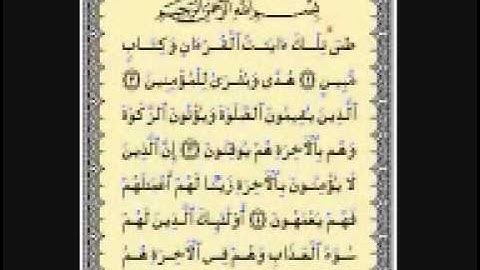 بسم الله الرحمن الرحيم
طس تلك ءايت القرءان وكتاب
مبين ١ هدى وبشرى للمؤمنين ٢
الذين يقيمون الصلوة ويؤتون الزكوة
وهم بالأخرة هم يوقنون ٣ إن الذين
لا يؤمنون بالأخرة زينا لهم أعملهم
فهم يعمهون ٤ أولئك الذين لهم
سوء العذاب وهم في الأخرة هم